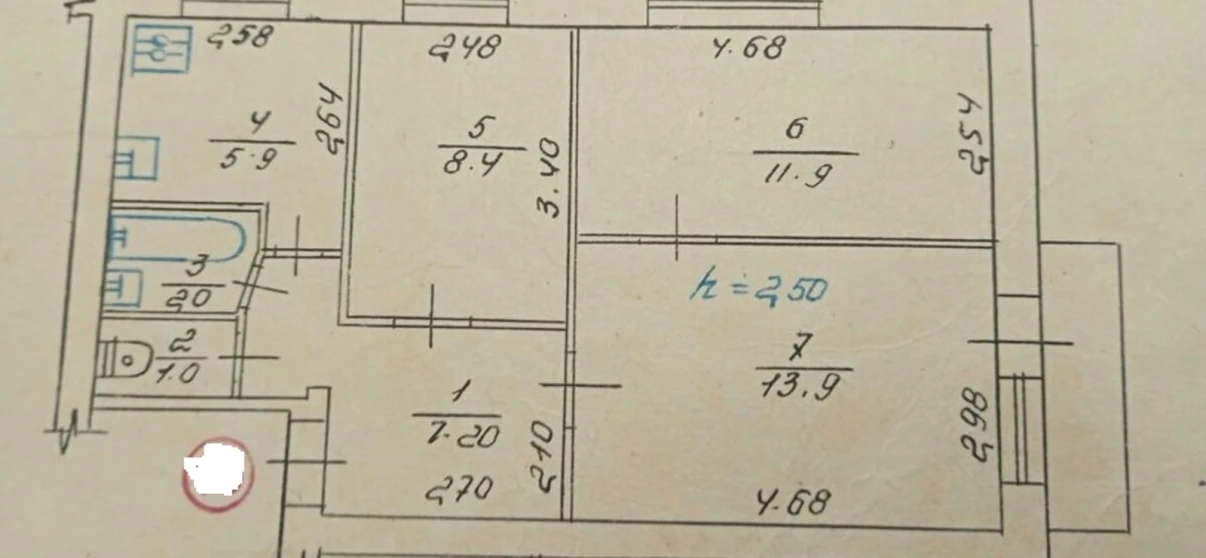 2,58
2,48
4.68
2,64
4
5.9
5
8.4
3.40
6
11.9
2,54
3
2,0
h = 2,50
2
1.0
7
13.9
1
7.20
2,10
2,98
2,70
4.68